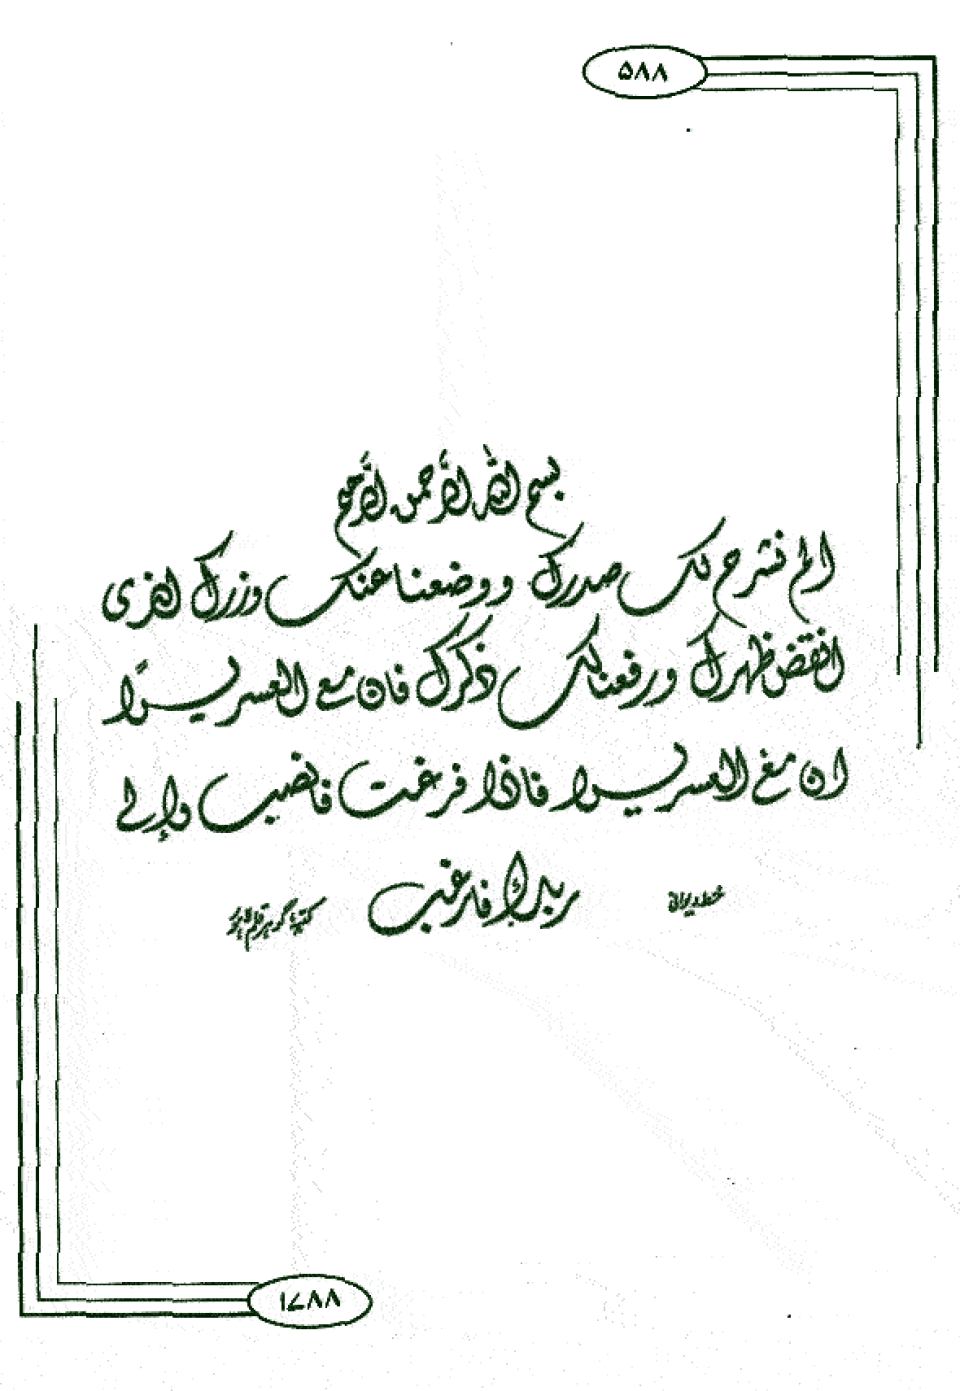 ۵۸۸
بسم الله الرحمن الرحیم
الم نشرح لک صدرک ووضعنا عنک وزرک الذی
انقض ظهرک ورفعنا لک ذکرک فان مع العسر یسرًا
ان مع العسر یسرا فاذا فرغت فانصب وإلی
ربک فارغب
خط دیوانی
۱۴۸۸